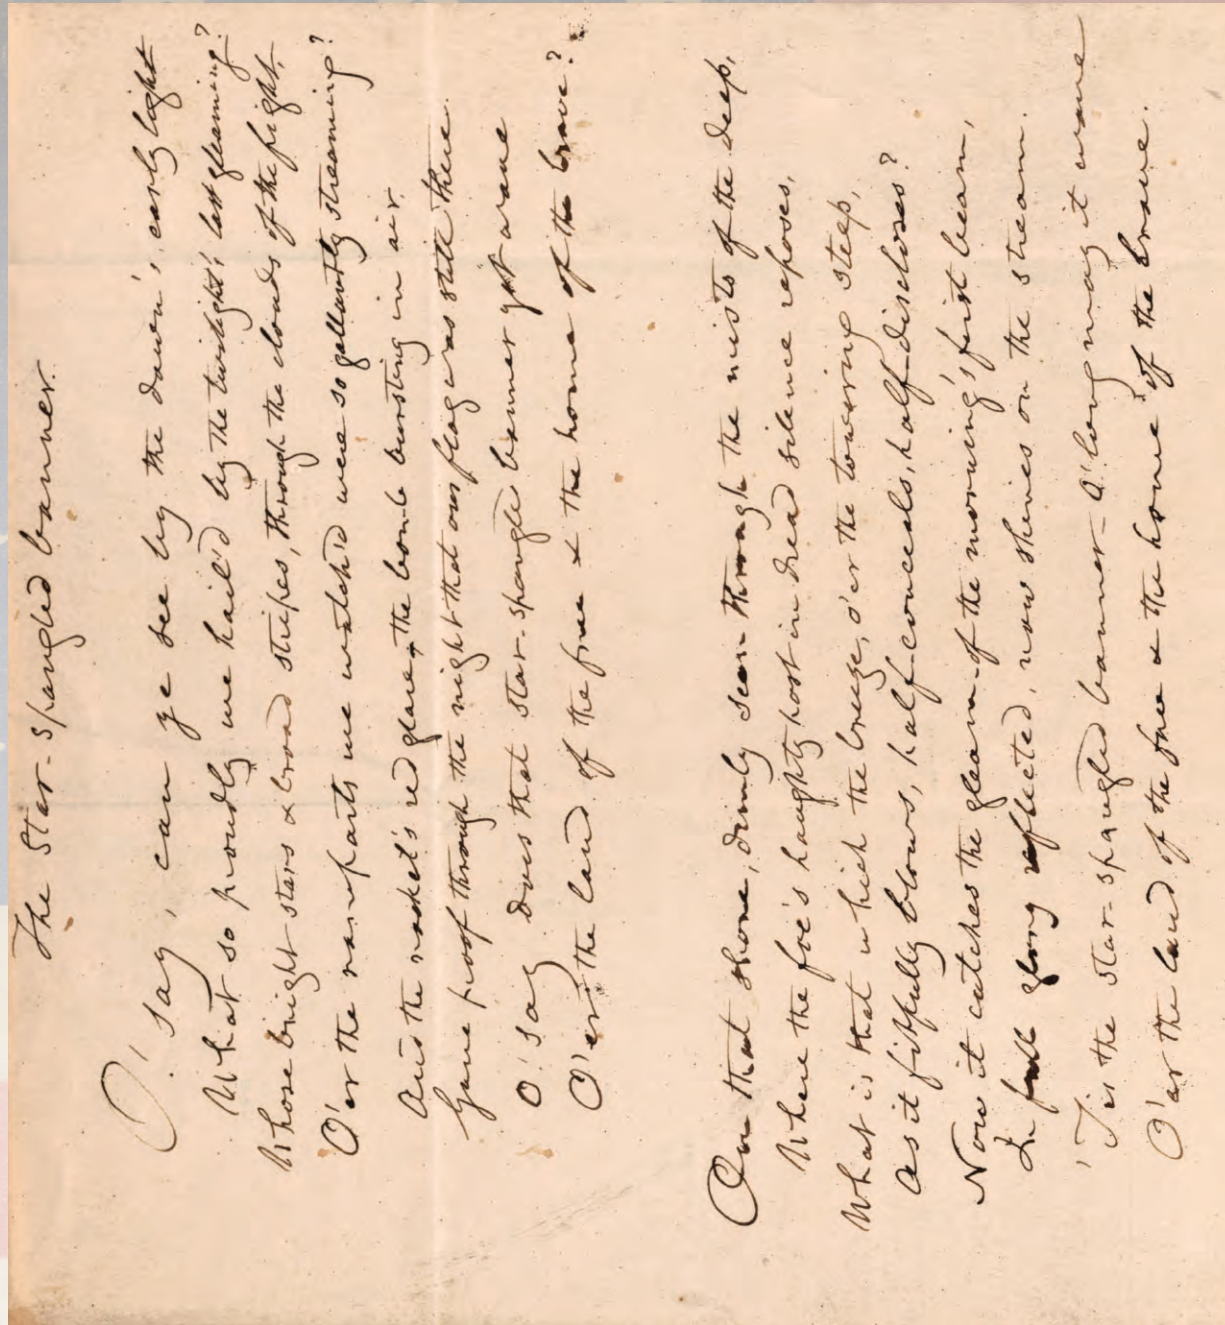 The Star-spangled banner.
O! say, can ye see by the dawn's early light
What so proudly we hail'd by the twilight's last gleaming?
Whose bright stars & broad stripes, through the clouds of the fight,
O'er the ramparts we watch'd were so gallantly streaming?
And the rocket's red glare, the bomb bursting in air
Gave proof through the night that our flag was still there
O! say does that star-spangled banner yet wave
O'er the land of the free & the home of the brave?
On that shore, dimly seen through the mists of the deep,
Where the foe's haughty host in dread silence reposes,
What is that which the breeze, o'er the towering steep,
As it fitfully blows, half conceals, half discloses?
Now it catches the gleam of the morning's first beam,
In full glory reflected, now shines on the stream.
'Tis the star-spangled banner – O! long may it wave
O'er the land of the free & the home of the brave.